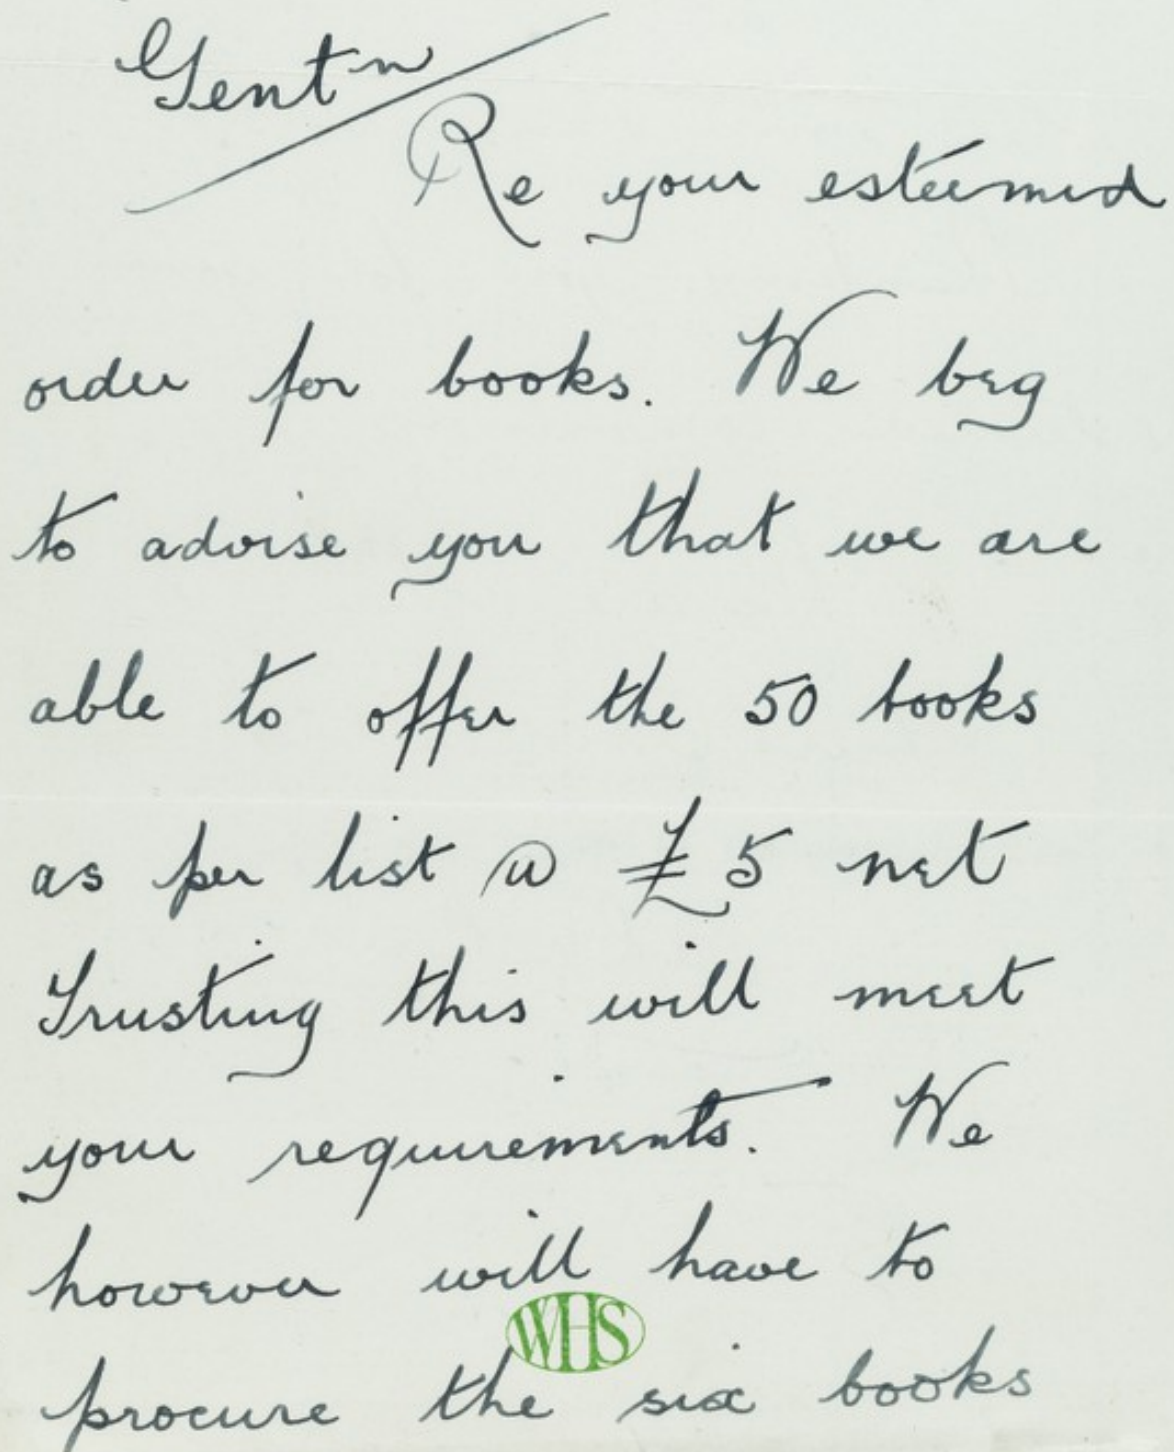 Gentn
Re your esteemed
order for books. We beg
to advise you that we are
able to offer the 50 books
as per list @ £5 net
Trusting this will meet
your requirements. We
however will have to
WHS
procure the six books